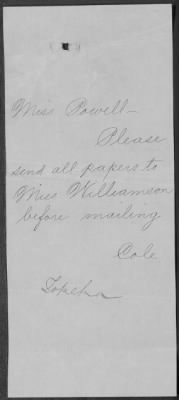 Miss Powell —
Please
send all papers to
Miss Williamson
before mailing
Cole
Topeka